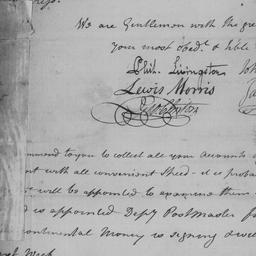 We are Gentlemen with the gre
your most Obed.t & hble
Phil. Livingston
Lewis Morris
mmend to you to collect all your Accounts
nt with all convenient Speed - it is proba
e will be appointed to examine them
is appointed Depy Postmaster
ontinental Money is signing & we